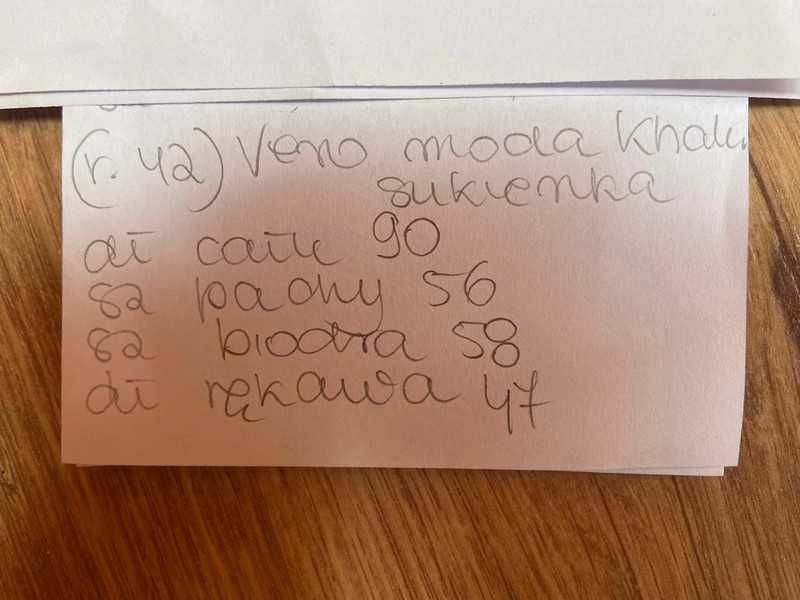 (r. 42) Vero moda Khaki
sukienka
dł całk 90
sz pachy 56
sz biodra 58
dł rękawa 47